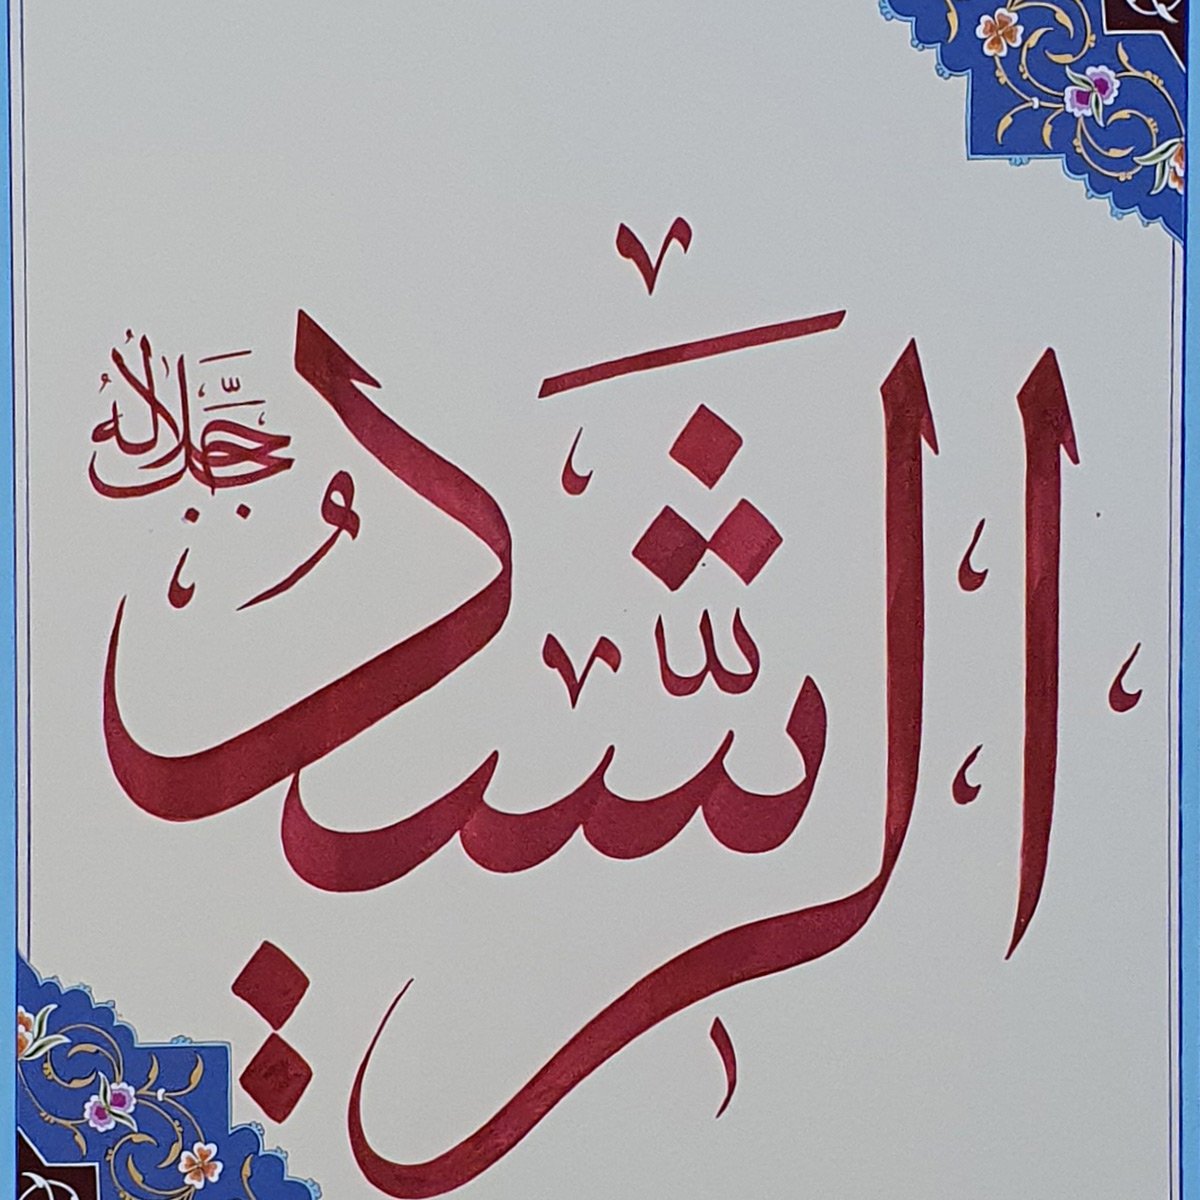 الرشيدُ
جَلَّ جلاله